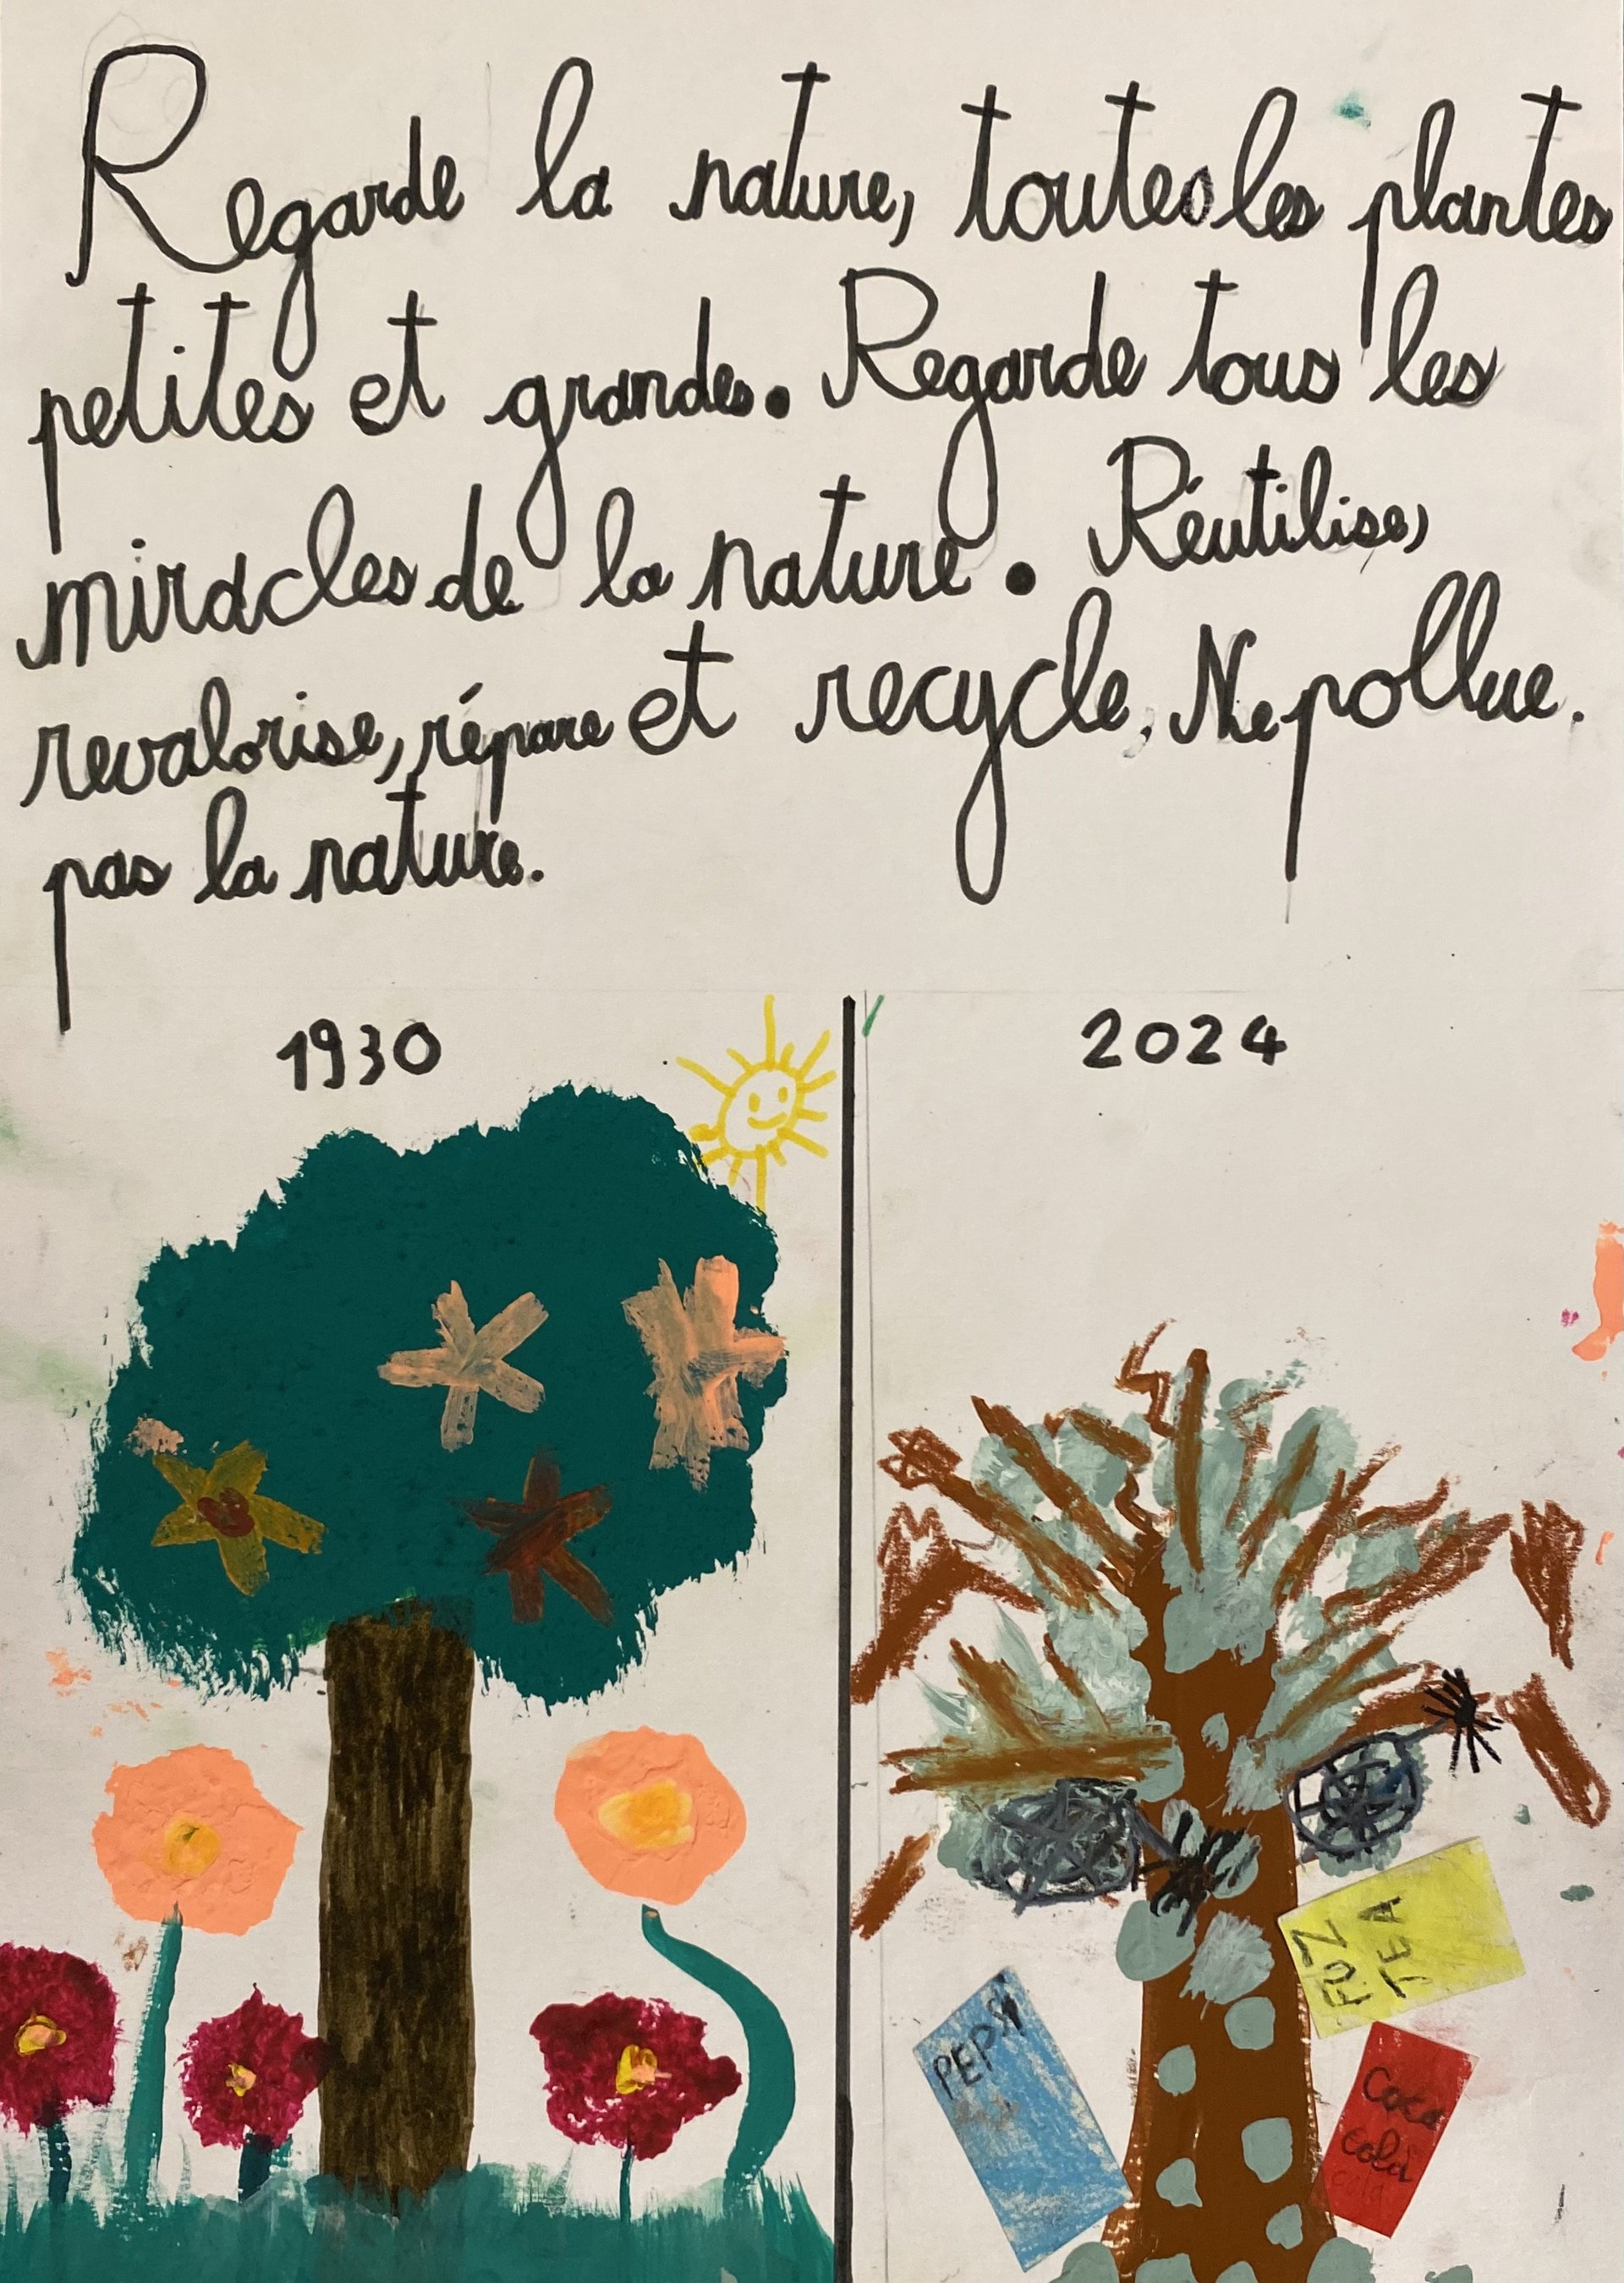 Regarde la nature, toutes les plantes
petites et grandes. Regarde tous les
miracles de la nature. Réutilise,
revalorise, répare et recycle. Ne pollue.
pas la nature.
1930
2024
FUZ
TEA
PEPSI
Coca
cola
cola